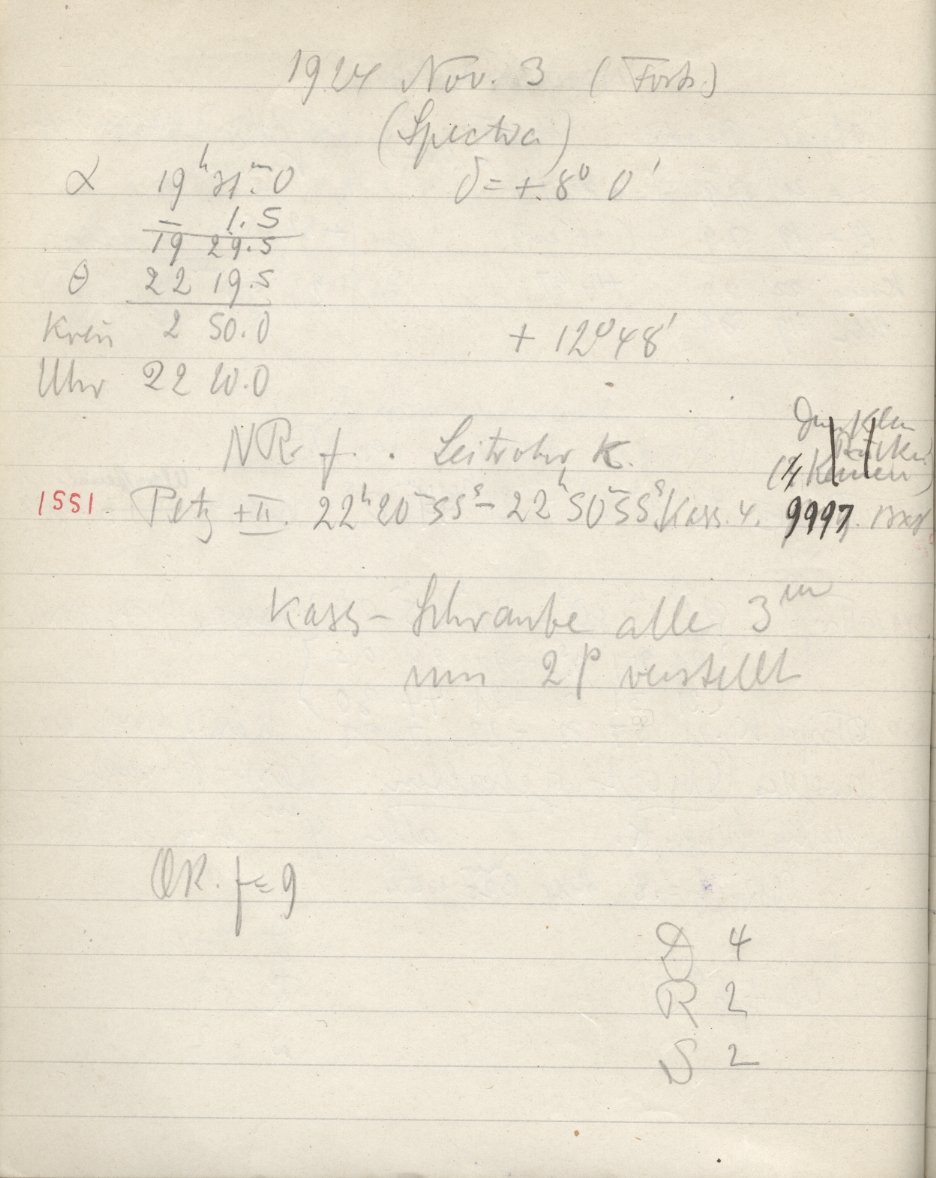 1924 Nov. 3 (Forts.)
(Spectra)
α 19ʰ 31ᵐ.0 δ = + 8° 0'
– 1.5
19 29.5
θ 22 19.5
Kreis 2 50.0 + 12° 48'
Uhr 22 20.0
NR. f. . Leitrohr K.
1551. Petz + II. 22ʰ 20ᵐ 55ˢ – 22ʰ 50ᵐ 55ˢ Kass. 4. 9997.
Kass-Schraube alle 3ᵐ
um 2ᵖ verstellt
OR. f = 9
D 4
R 2
S 2